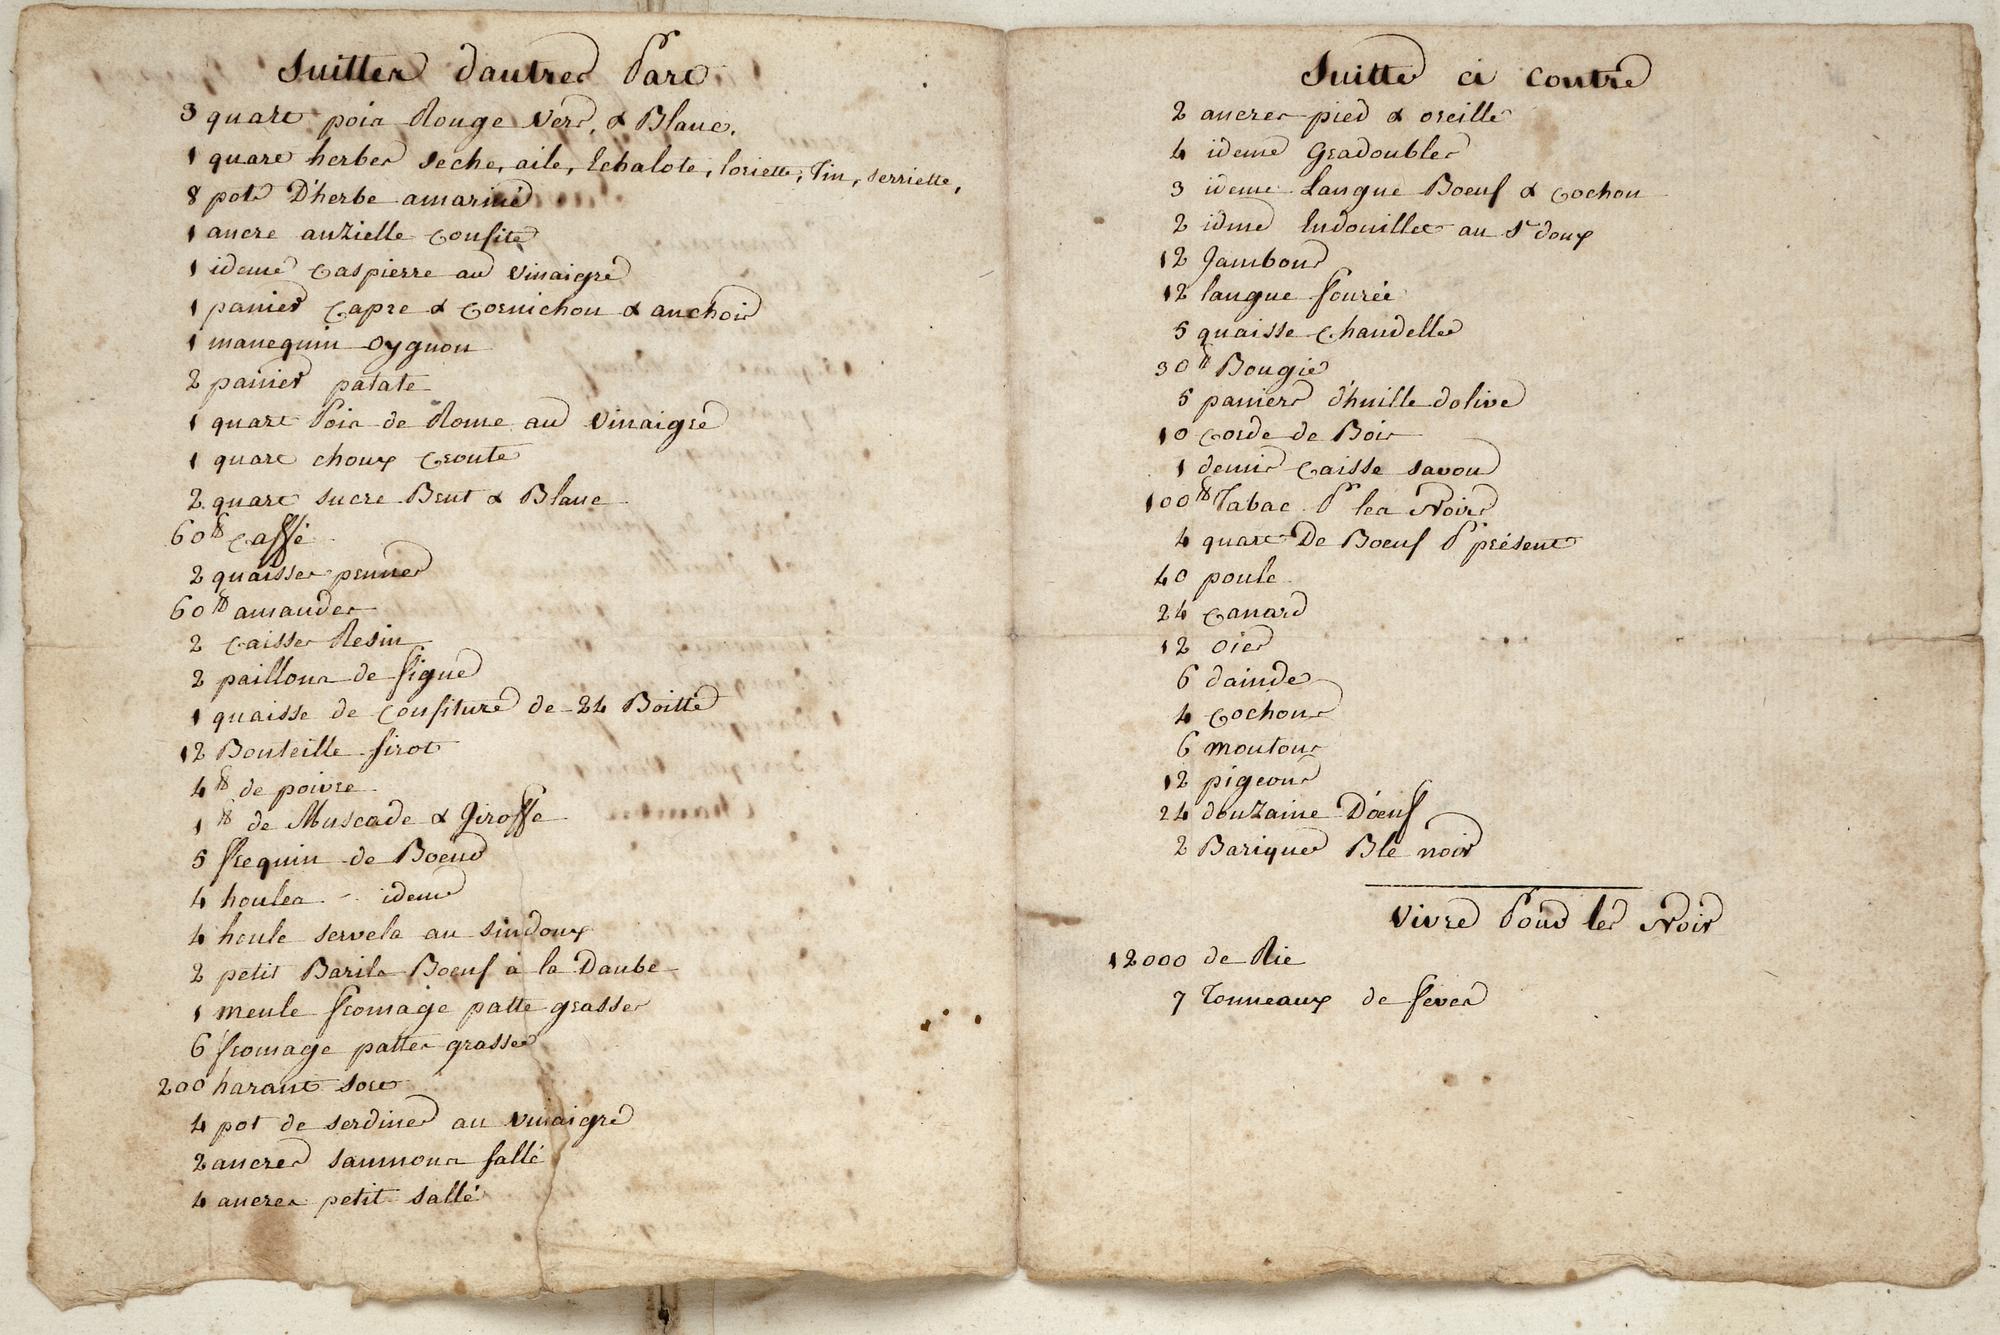 Suittes dautres Part
3 quart pois Rouge Vers, & Blanc.
1 quart herbes seche, aile, Echalote, loriette, Tin, serriette,
8 pots D'herbe amariné
1 ancre auzielle Confite
1 ideme Caspierre au Vinaigre
1 panier Capre & Cornichon & anchois
1 manequin oygnon
2 panier patate
1 quart Pois de Rome au Vinaigre
1 quart choux Croute
2 quart sucre Brut & Blanc
60 ℔ Caffé
2 quaisses prunes
60 ℔ amandes
2 Caisses Resin
2 paillons de figue
1 quaisse de Confiture de 24 Boitte
12 Bouteille sirot
4 ℔ de poivre
1 ℔ de Muscade & Giroffe
5 frequin de Boeur
4 houles - idem
4 houle servela au sindoux
2 petit Barils Boeuf à la Daube
1 meule fromage patte grasses
6 fromage pattes grasses
200 harant sore
4 pot de serdines au vinaigre
2 ancres saumons sallé
4 ancres petit sallé
Suitte ci contre
2 ancres pied & oreille
4 ideme Gradoubles
3 ideme Langue Boeuf & Cochon
2 idme Endouilles au Sn doux
12 Jambons
12 langue fourée
5 quaisse Chandelles
30 ℔ Bougie
5 paniers d'huille dolive
10 Corde de Bois
1 demis Caisse savon
100 ℔ Tabac Pr les Noirs
4 quart De Boeuf Pr présent
40 poule
24 Canard
12 oies
6 dainde
4 Cochons
6 moutons
12 pigeons
24 douzaine D'oeuf
2 Bariques Blé noir
Vivre Pour les Noir
12000 de Rie
7 Tonneaux de feves